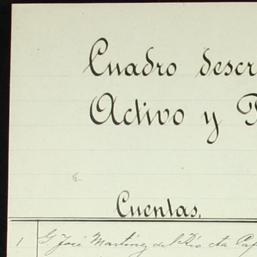 Cuadro descr
Activo y P
Cuentas.
1 G. José Martínez del Río cta Pap